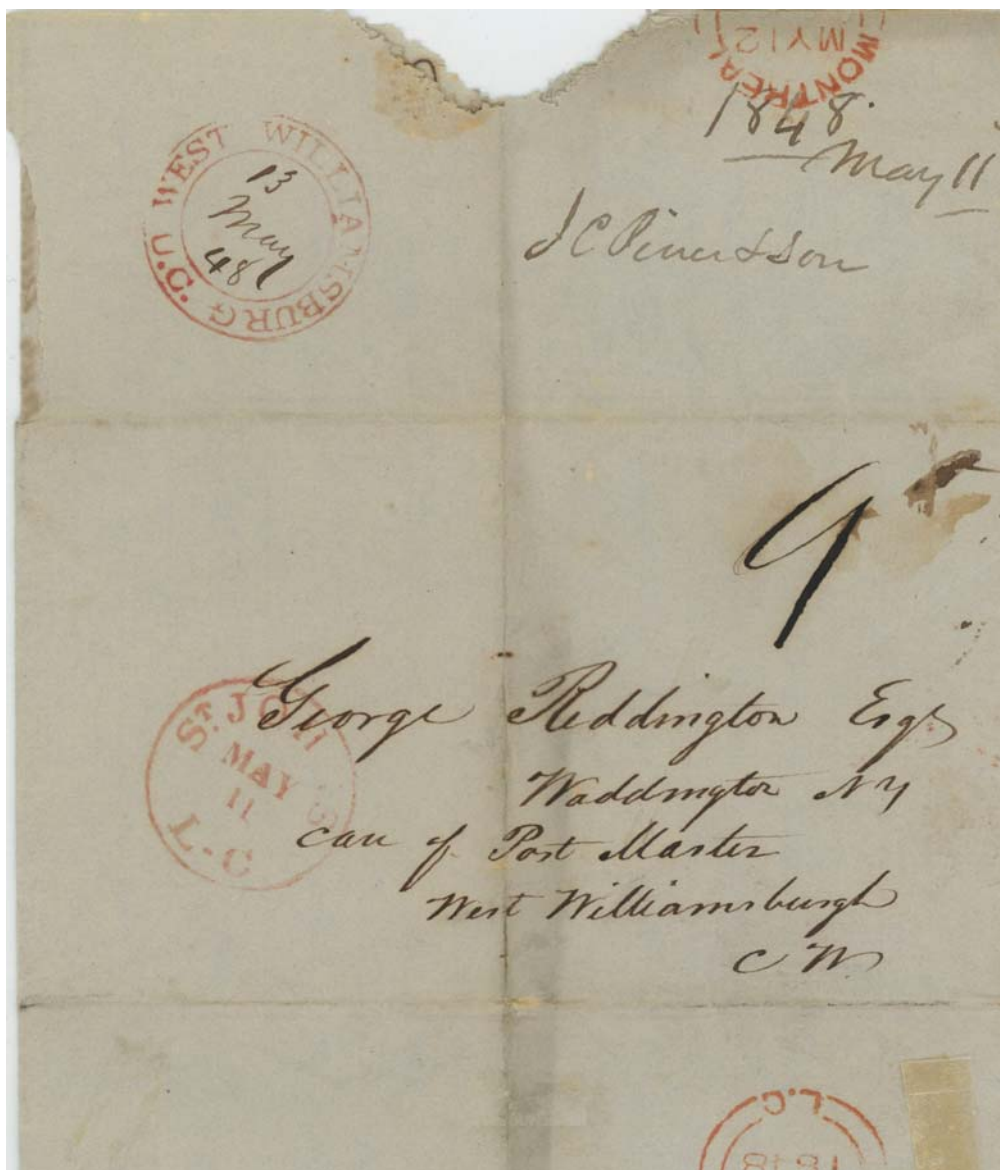 MONTREAL
MY 12
1848.
May 11
WEST WILLIAMSBURG. U.C.
13
May
48
J C & Son
9
St JOHNS
MAY
11
L.C
George Reddington Esqr
Waddington N Y
care of Post Master
West Williamsburgh
C W
L.C.
1848